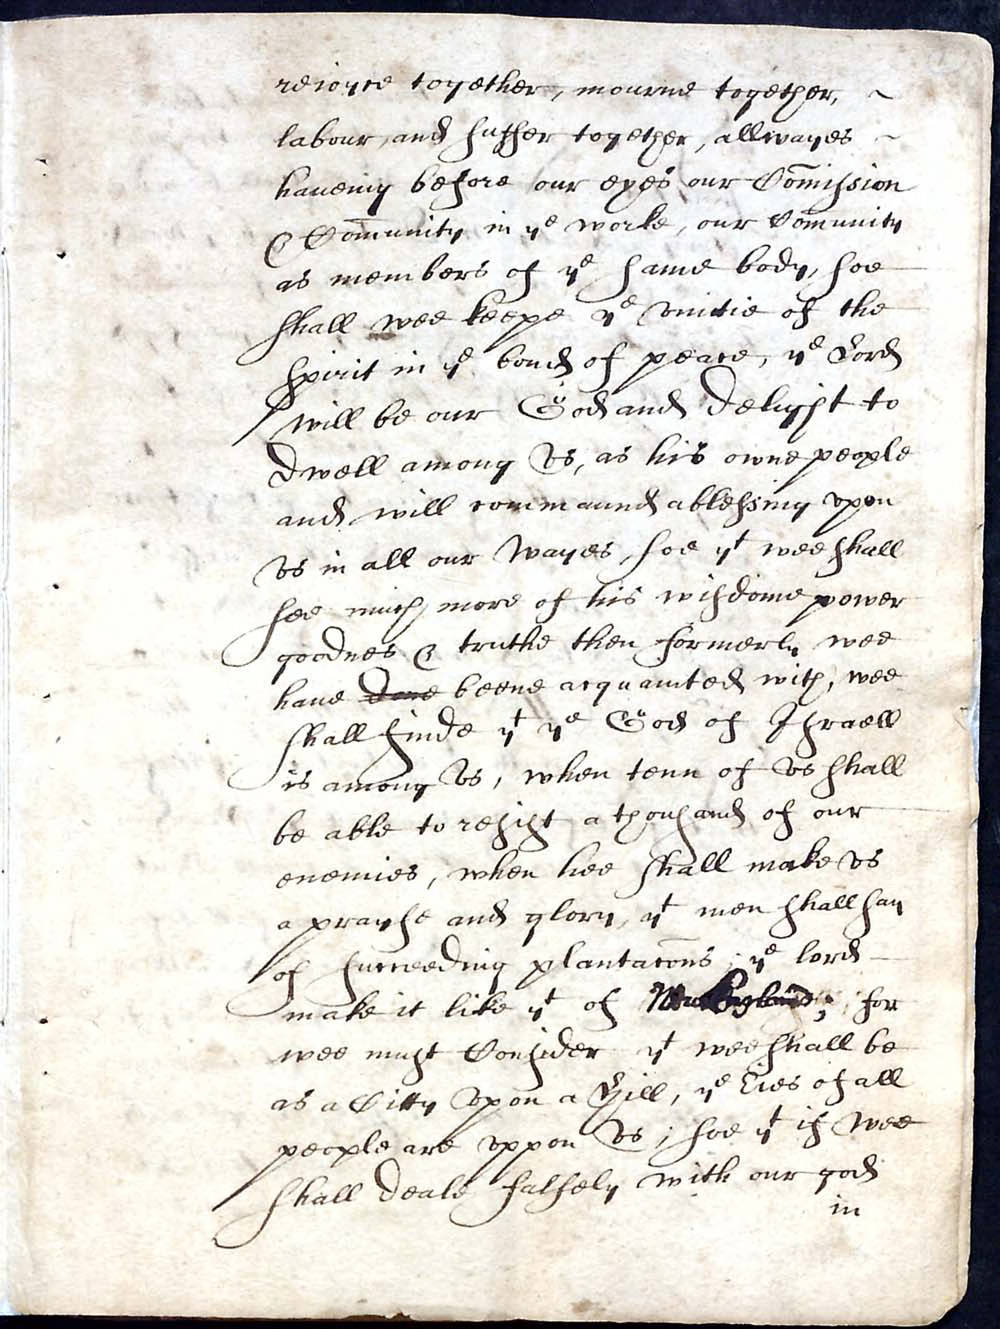 reioyce together, mourne together, ~
labour, and suffer together, allwayes ~
haueing before our eyes our Com̄ission
& Com̄unity in yᵉ worke, our Com̄unity
as members of yᵉ same body, soe
shall wee keepe yᵉ vnitie of the
spirit in yᵉ bond of peace, yᵉ Lord
will be our God and delight to
dwell among vs, as his owne people
and will commaund a blessing vpon
vs in all our wayes, soe yᵗ wee shall
see much more of his wisdome power
goodnes & truthe then formerly wee
haue beene acquainted with, wee
shall finde yᵗ yᵉ God of Israell
is among vs, when tenn of vs shall
be able to resist a thousand of our
enemies, when hee shall make vs
a prayse and glory, yᵗ men shall say
of succeeding plantacons: yᵉ lord
make it like yᵗ of New England; for
wee must Consider yᵗ wee shall be
as a Citty vpon a Hill, yᵉ Eies of all
people are vppon vs; soe yᵗ if wee
shall deale falsely with our god
in